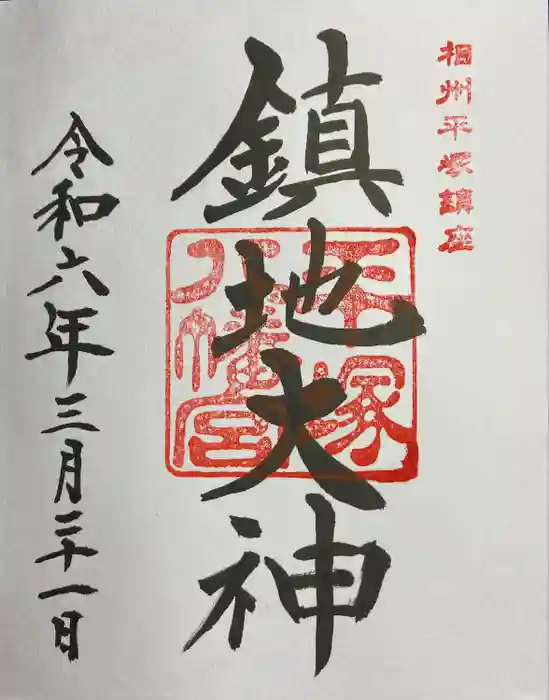 相州平塚鎮座
鎮地大神
平塚
八幡宮
令和六年三月二十一日